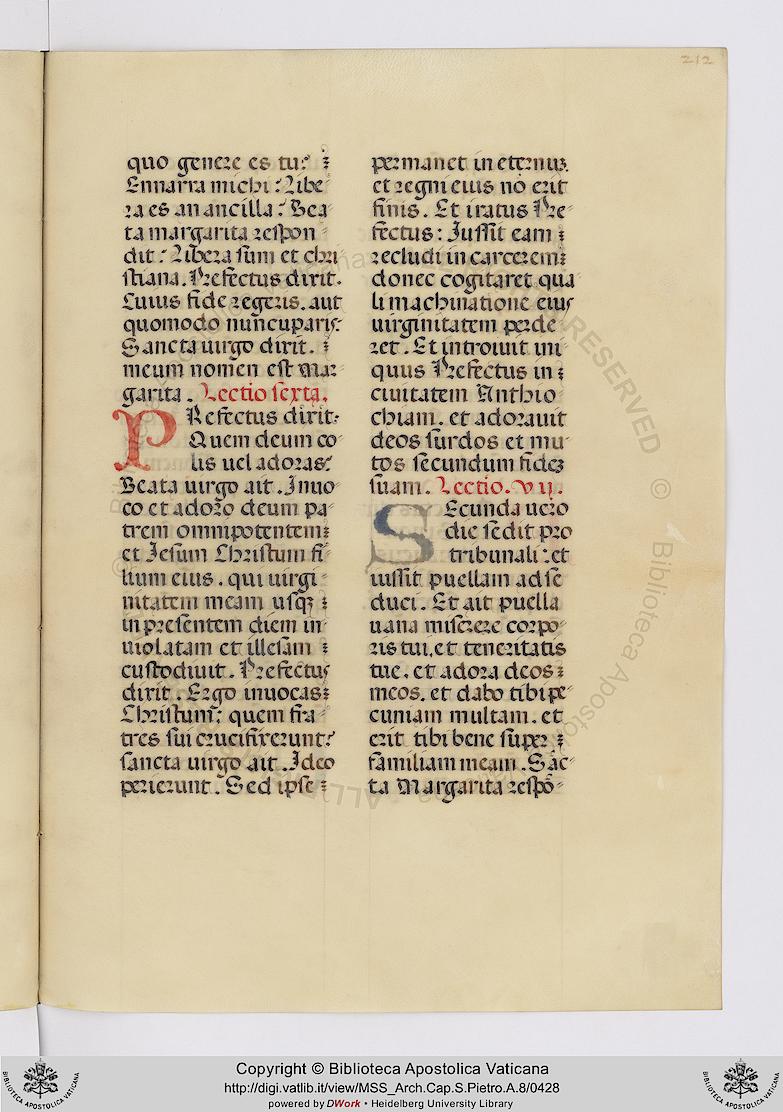 212
quo genere es tu?
Ennarra michi: Libe
ra es an ancilla? Bea
ta margarita respon
dit: Libera sum et chri
stiana. Prefectus dixit.
Cuius fide regeris. aut
quomodo nuncuparis?
Sancta uirgo dixit.
meum nomen est Mar
garita. Lectio sexta.
PRefectus dixit:
Quem deum co
lis uel adoras?
Beata uirgo ait. Inuo
co et adoro deum pa
trem omnipotentem
et Iesum Christum fi
lium eius. qui uirgi
nitatem meam usqꝫ
in presentem diem in
uiolatam et illesam
custodiuit. Prefectus
dixit. Ergo inuocas
Christum: quem fra
tres sui crucifixerunt?
sancta uirgo ait. Ideo
perierunt. Sed ipse
permanet in eternuꝫ.
et regni eius nō erit
finis. Et iratus Pre
fectus: Iussit eam
recludi in carcerem
donec cogitaret qua
li machinatione eius
uirginitatem perde
ret. Et introiuit ini
quus Prefectus in
ciuitatem Anthio
chiam. et adorauit
deos surdos et mu
tos secundum fideꝫ
suam. Lectio. VII.
SEcunda uero
die sedit pro
tribunali: et
iussit puellam ad se
duci. Et ait puella
uana miserere corpo
ris tui. et teneritatis
tue. et adora deos
meos. et dabo tibi pe
cuniam multam. et
erit tibi bene super
familiam meam. Sāc
ta Margarita respō
Copyright © Biblioteca Apostolica Vaticana
http://digi.vatlib.it/view/MSS_Arch.Cap.S.Pietro.A.8/0428
powered by DWork • Heidelberg University Library